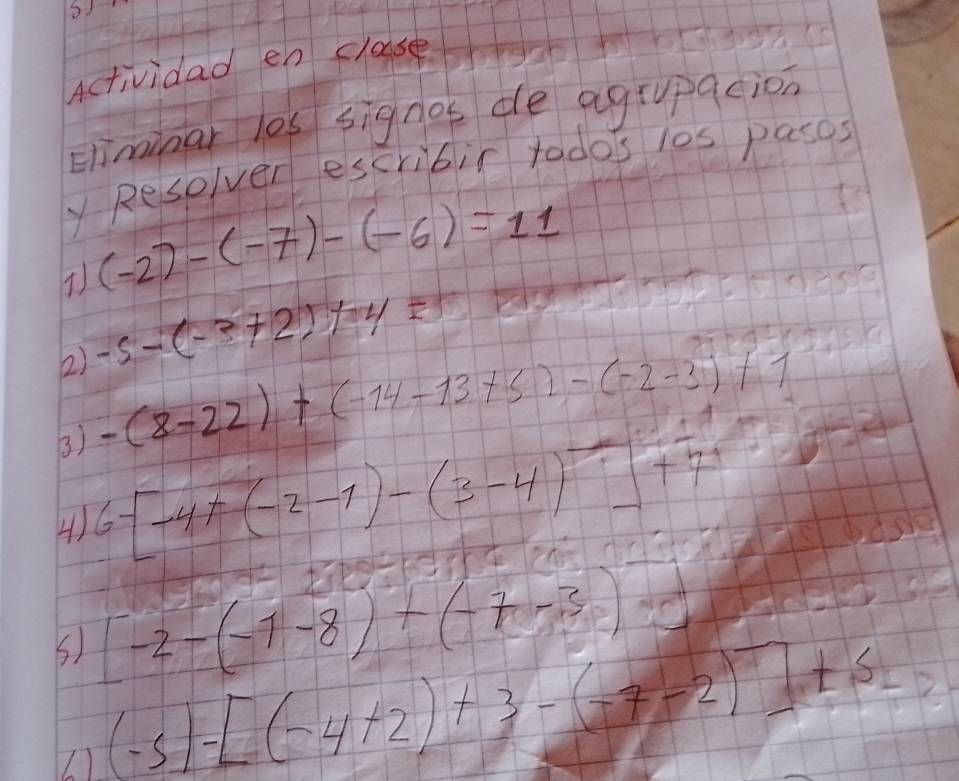 5)
Actividad en clase
Eliminar los signos de agrupación
y Resolver escribir todos los pasos
1) (-2) - (-7) - (-6) = 11
2) -5 - (-3+2) + 4 =
3) -(8-22) + (-14-13+5) - (-2-3) + 1
4) 6-[-4+(-2-1)-(3-4)]+7
5) [-2-(-1-8)+(-7-3)]
6) (-5)-[(-4+2)+3-(-7-2)]+5